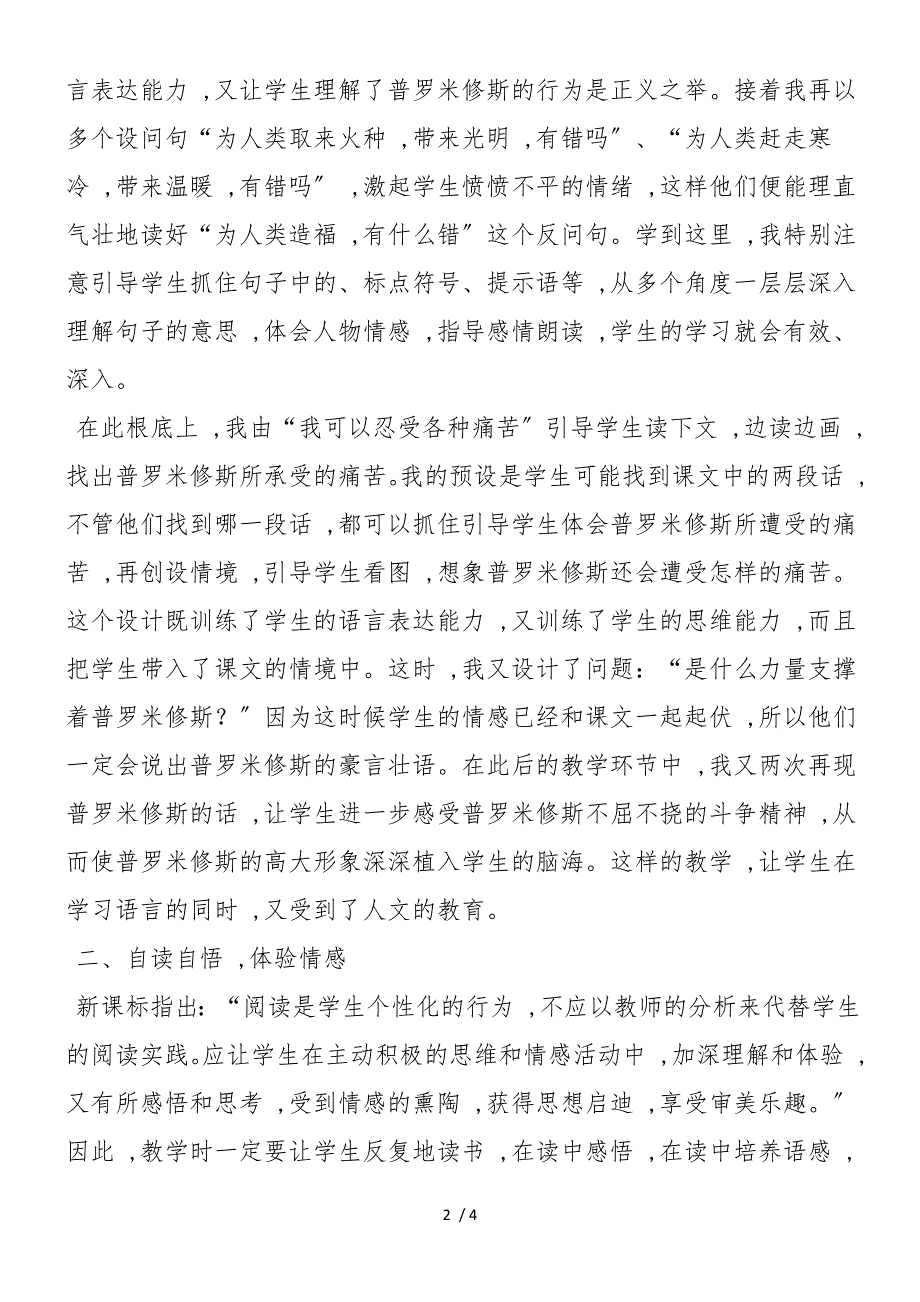 言表达能力 ,又让学生理解了普罗米修斯的行为是正义之举。接着我再以
多个设问句“为人类取来火种 ,带来光明 ,有错吗〞、“为人类赶走寒
冷 ,带来温暖 ,有错吗〞 ,激起学生愤愤不平的情绪 ,这样他们便能理直
气壮地读好“为人类造福 ,有什么错〞这个反问句。学到这里 ,我特别注
意引导学生抓住句子中的、标点符号、提示语等 ,从多个角度一层层深入
理解句子的意思 ,体会人物情感 ,指导感情朗读 ,学生的学习就会有效、
深入。
在此根底上 ,我由“我可以忍受各种痛苦〞引导学生读下文 ,边读边画 ,
找出普罗米修斯所承受的痛苦。我的预设是学生可能找到课文中的两段话 ,
不管他们找到哪一段话 ,都可以抓住引导学生体会普罗米修斯所遭受的痛
苦 ,再创设情境 ,引导学生看图 ,想象普罗米修斯还会遭受怎样的痛苦。
这个设计既训练了学生的语言表达能力 ,又训练了学生的思维能力 ,而且
把学生带入了课文的情境中。这时 ,我又设计了问题：“是什么力量支撑
着普罗米修斯？〞因为这时候学生的情感已经和课文一起起伏 ,所以他们
一定会说出普罗米修斯的豪言壮语。在此后的教学环节中 ,我又两次再现
普罗米修斯的话 ,让学生进一步感受普罗米修斯不屈不挠的斗争精神 ,从
而使普罗米修斯的高大形象深深植入学生的脑海。这样的教学 ,让学生在
学习语言的同时 ,又受到了人文的教育。
二、自读自悟 ,体验情感
新课标指出：“阅读是学生个性化的行为 ,不应以教师的分析来代替学生
的阅读实践。应让学生在主动积极的思维和情感活动中 ,加深理解和体验 ,
又有所感悟和思考 ,受到情感的熏陶 ,获得思想启迪 ,享受审美乐趣。〞
因此 ,教学时一定要让学生反复地读书 ,在读中感悟 ,在读中培养语感 ,
2 / 4